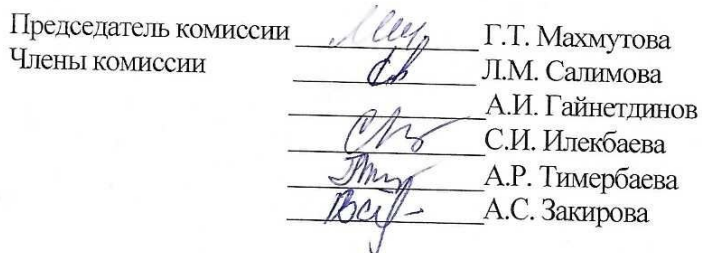 Председатель комиссии ____________ Г.Т. Махмутова
Члены комиссии ____________ Л.М. Салимова
____________ А.И. Гайнетдинов
____________ С.И. Илекбаева
____________ А.Р. Тимербаева
____________ А.С. Закирова